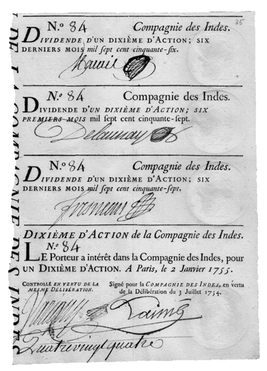 N.o 84 Compagnie des Indes.
DIVIDENDE D'UN DIXIÈME D'ACTION; SIX
DERNIERS MOIS mil sept cent cinquante-six.
N.o 84 Compagnie des Indes.
DIVIDENDE D'UN DIXIÈME D'ACTION; SIX
PREMIERS MOIS mil sept cent cinquante-sept.
Delaunay
N.o 84 Compagnie des Indes.
DIVIDENDE D'UN DIXIÈME D'ACTION; SIX
DERNIERS MOIS mil sept cent cinquante-sept.
DIXIÈME D'ACTION de la Compagnie des Indes.
N.o 84
LE Porteur a intérêt dans la Compagnie des Indes, pour
UN DIXIÈME D'ACTION. A Paris, le 2 Janvier 1755.
CONTROLLÉ EN VERTU DE LA
MESME DÉLIBÉRATION.
Signé pour la COMPAGNIE DES INDES, en vertu
de la Délibération du 3 Juillet 1754.
Quatrevingt quatre